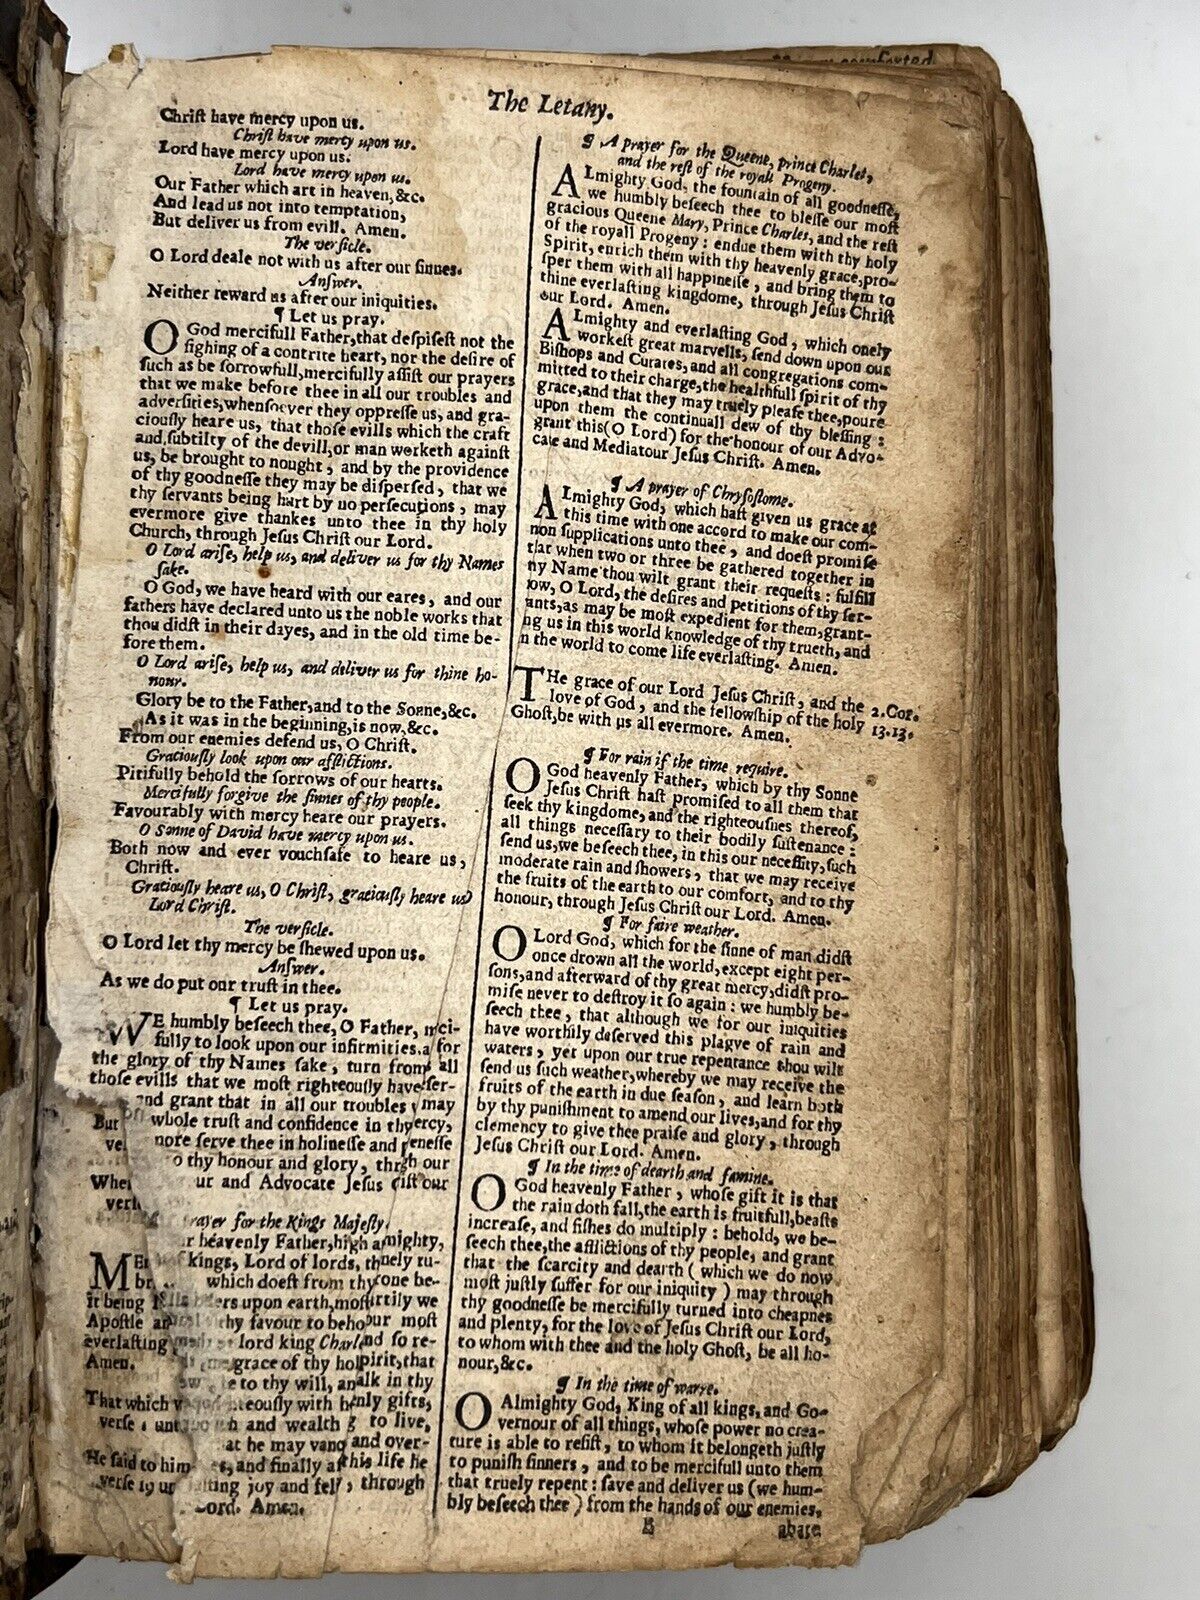 The Letany.
Chriſt have mercy upon us.
Chriſt have mercy upon us.
Lord have mercy upon us.
Lord have mercy upon us.
Our Father which art in heaven, &c.
And lead us not into temptation,
But deliver us from evill. Amen.
The verſicle.
O Lord deale not with us after our ſinnes.
Anſwer.
Neither reward us after our iniquities.
¶ Let us pray.
O God mercifull Father, that deſpiſeſt not the
ſighing of a contrite heart, nor the deſire of
ſuch as be ſorrowfull, mercifully aſſiſt our prayers
that we make before thee in all our troubles and
adverſities, whenſoever they oppreſſe us, and gra-
ciouſly heare us, that thoſe evills which the craft
and ſubtilty of the devill, or man worketh againſt
us, be brought to nought, and by the providence
of thy goodneſſe they may be diſperſed, that we
thy ſervants being hurt by no perſecutions, may
evermore give thankes unto thee in thy holy
Church, through Jeſus Chriſt our Lord.
O Lord ariſe, help us, and deliver us for thy Names
ſake.
O God, we have heard with our eares, and our
fathers have declared unto us the noble works that
thou didſt in their dayes, and in the old time be-
fore them.
O Lord ariſe, help us, and deliver us for thine ho-
nour.
Glory be to the Father, and to the Sonne, &c.
As it was in the beginning, is now, &c.
From our enemies defend us, O Chriſt.
Graciouſly look upon our afflictions.
Pitifully behold the ſorrows of our hearts.
Mercifully forgive the ſinnes of thy people.
Favourably with mercy heare our prayers.
O Sonne of David have mercy upon us.
Both now and ever vouchſafe to heare us,
Chriſt.
Graciouſly heare us, O Chriſt, graciouſly heare us
Lord Chriſt.
The verſicle.
O Lord let thy mercy be ſhewed upon us.
Anſwer.
As we do put our truſt in thee.
¶ Let us pray.
WE humbly beſeech thee, O Father, mci-
fully to look upon our infirmities, a for
the glory of thy Names ſake, turn from all
thoſe evills that we moſt righteouſly have ſer-
and grant that in all our troubles may
But whole truſt and confidence in thy ercy,
ve nore ſerve thee in holineſſe and eneſſe
o thy honour and glory, thrgh our
Whe ur and Advocate Jeſus iſt our
verſ
rayer for the Kings Majeſty.
r heavenly Father, high amighty,
ME kings, Lord of lords, thnely ru-
br which doeſt from thy one be-
it being ers upon earth, moſt rtily we
Apoſtle an thy favour to beho our moſt
everlaſting lord king Charl nd ſo re-
Amen. grace of thy hol pirit, that
to thy will, an alk in thy
That which teouſly with h nly gifts,
verſe and wealth g to live,
at he may vanq and over-
He ſaid to him es, and finally a this life he
verſe 19 ting joy and fel, through
Lord. Amen.
¶ A prayer for the Queene, prince Charles,
and the reſt of the royall Progeny.
ALmighty God, the fountain of all goodneſſe,
we humbly beſeech thee to bleſſe our moſt
gracious Queene Mary, Prince Charles, and the reſt
of the royall Progeny : endue them with thy holy
Spirit, enrich them with thy heavenly grace, pro-
ſper them with all happineſſe, and bring them to
thine everlaſting kingdome, through Jeſus Chriſt
our Lord. Amen.
ALmighty and everlaſting God, which onely
workeſt great marvells, ſend down upon our
Biſhops and Curates, and all congregations com-
mitted to their charge, the healthfull ſpirit of thy
grace, and that they may truely pleaſe thee, poure
upon them the continuall dew of thy bleſſing :
grant this (O Lord) for the honour of our Advo-
cate and Mediatour Jeſus Chriſt. Amen.
¶ A prayer of Chryſoſtome.
ALmighty God, which haſt given us grace at
this time with one accord to make our com-
non ſupplications unto thee, and doeſt promiſe
that when two or three be gathered together in
ny Name thou wilt grant their requeſts : fulfill
now, O Lord, the deſires and petitions of thy ſer-
vants, as may be moſt expedient for them, grant-
ng us in this world knowledge of thy trueth, and
n the world to come life everlaſting. Amen.
THe grace of our Lord Jeſus Chriſt, and the 2. Cor.
love of God, and the fellowſhip of the holy 13.13.
Ghoſt, be with us all evermore. Amen.
¶ For rain if the time require.
O God heavenly Father, which by thy Sonne
Jeſus Chriſt haſt promiſed to all them that
ſeek thy kingdome, and the righteouſnes thereof,
all things neceſſary to their bodily ſuſtenance :
ſend us, we beſeech thee, in this our neceſſity, ſuch
moderate rain and ſhowers, that we may receive
the fruits of the earth to our comfort, and to thy
honour, through Jeſus Chriſt our Lord. Amen.
¶ For faire weather.
O Lord God, which for the ſinne of man didſt
once drown all the world, except eight per-
ſons, and afterward of thy great mercy, didſt pro-
miſe never to deſtroy it ſo again : we humbly be-
ſeech thee, that although we for our iniquities
have worthily deſerved this plague of rain and
waters, yet upon our true repentance thou wilt
ſend us ſuch weather, whereby we may receive the
fruits of the earth in due ſeaſon, and learn both
by thy puniſhment to amend our lives, and for thy
clemency to give thee praiſe and glory, through
Jeſus Chriſt our Lord. Amen.
¶ In the time of dearth and famine.
O God heavenly Father, whoſe gift it is that
the rain doth fall, the earth is fruitfull, beaſts
increaſe, and fiſhes do multiply : behold, we be-
ſeech thee, the afflictions of thy people, and grant
that the ſcarcity and dearth (which we do now
moſt juſtly ſuffer for our iniquity) may through
thy goodneſſe be mercifully turned into cheapnes
and plenty, for the love of Jeſus Chriſt our Lord,
to whom with thee and the holy Ghoſt, be all ho-
nour, &c.
¶ In the time of warre.
O Almighty God, King of all kings, and Go-
vernour of all things, whoſe power no crea-
ture is able to reſiſt, to whom it belongeth juſtly
to puniſh ſinners, and to be mercifull unto them
that truely repent : ſave and deliver us (we hum-
bly beſeech thee) from the hands of our enemies,
B abate